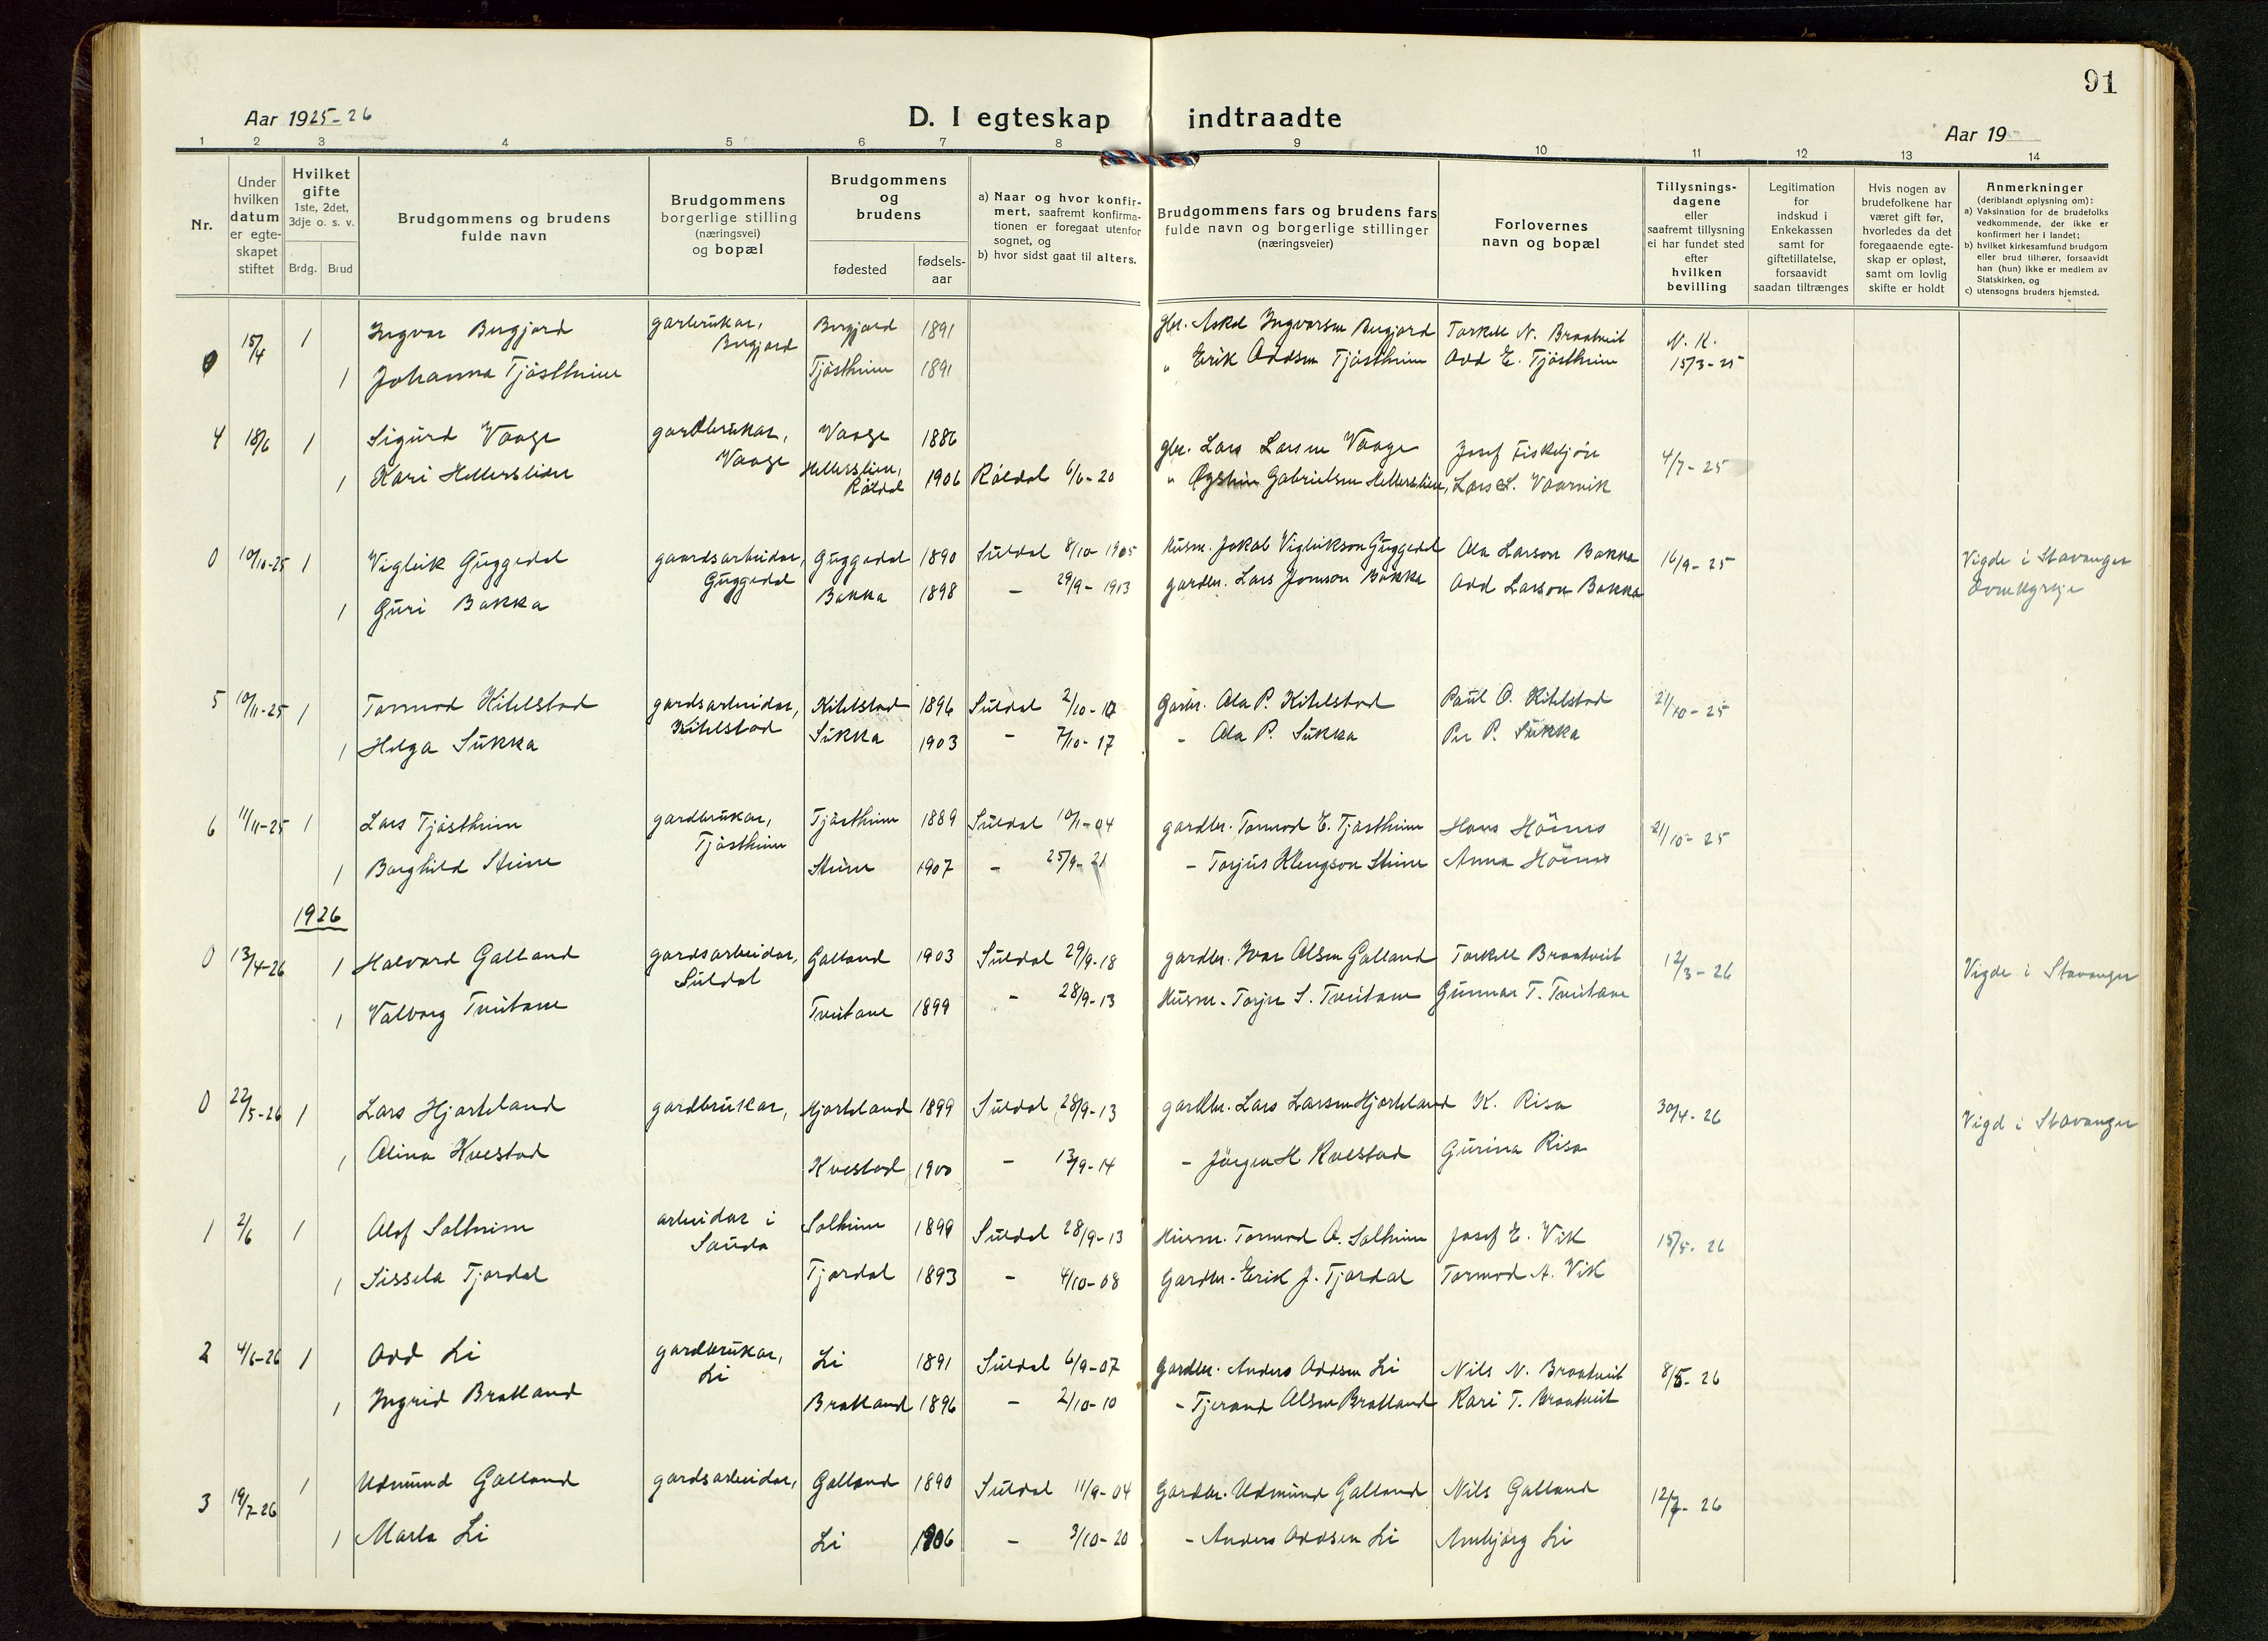 91
Aar 1925-26
D. I egteskap indtraadte
Aar 19
1 2 3 4 5 6 7 8 9 10 11 12 13 14
Nr.
Under hvilken datum er egte- skapet stiftet
Hvilket gifte 1ste, 2det, 3dje o. s. v.
Brdg. Brud
Brudgommens og brudens fulde navn
Brudgommens borgerlige stilling (næringsvei) og bopæl
Brudgommens og brudens
fødested
fødsels- aar
a) Naar og hvor konfir- mert, saafremt konfirma- tionen er foregaat utenfor sognet, og
b) hvor sidst gaat til alters.
Brudgommens fars og brudens fars fulde navn og borgerlige stillinger (næringsveier)
Forlovernes navn og bopæl
Tillysnings- dagene eller saafremt tillysning ei har fundet sted efter hvilken bevilling
Legitimation for indskud i Enkekassen samt for giftetillatelse, forsaavidt saadan tiltrænges
Hvis nogen av brudefolkene har været gift før, hvorledes da det foregaaende egte- skap er opløst, samt om lovlig skifte er holdt
Anmerkninger (deriblandt oplysning om):
a) Vaksination for de brudefolks vedkommende, der ikke er konfirmert her i landet;
b) hvilket kirkesamfund brudgom eller brud tilhører, forsaavidt han (hun) ikke er medlem av Statskirken, og
c) utensogns bruders hjemsted.
0 15/4 1 Ingvar Bergjord garbrukar, Bergjord Bergjord 1891 gbr. Askel Ingvarsen Bergjord Torkell N. Braatveit N. K. 15/3-25
1 Johanna Tjøstheim Tjøstheim 1891 " Erik Oddsen Tjøstheim Odd E. Tjøstheim
4 18/6 1 Sigurd Vaage gardbrukar, Vaage Vaage 1886 gbr. Lars Larsen Vaage Josef Fiskekjøn 4/7-25
1 Kari Hellerslien Hellerslien, Røldal 1906 Røldal 6/6-20 " Øystein Gabrielsen Hellerslien, Lars L. Vaarvik
0 10/10-25 1 Vigleik Guggedal gaardsarbeidar, Guggedal Guggedal 1890 Suldal 8/10-1905 Husm. Jakob Vigleikson Guggedal Ola Larson Bakka 16/9-25 Vigde i Stavanger
1 Guri Bakka Bakka 1898 - 29/9-1913 gardbr. Lars Jonson Bakka Odd Larson Bakka Domkyrkje
5 10/11-25 1 Tormod Kitelstad gardsarbeidar, Kitelstad Kitelstad 1896 Suldal 2/10-10 Garbr. Ola P. Kitelstad Paul O. Kitelstad 21/10-25
1 Helga Sukka Sukka 1903 - 7/10-17 - Ola P. Sukka Per P. Sukka
6 11/11-25 1 Lars Tjøstheim gardbrukar, Tjøstheim Tjøstheim 1889 Suldal 10/1-04 gardbr. Tormod E. Tjøstheim Hans Höines 21/10-25
1 Borghild Steine Steine 1907 - 25/9-21 - Torjus Klengson Steine Anna Höines
1926
0 13/4-26 1 Halvard Galland gardsarbeidar, Suldal Galland 1903 Suldal 29/9-18 gardbr. Ivar Olsen Galland Torkell Braatveit 12/3-26 Vigde i Stavanger
1 Valborg Tveitane Tveitane 1899 - 28/9-13 Husm. Torjer S. Tveitane Gunnar T. Tveitane
0 22/5-26 1 Lars Hjorteland gardbrukar, Hjorteland 1899 Suldal 28/9-13 gardbr. Lars Larsen Hjorteland K. Risa 30/4-26 Vigd i Stavanger
1 Olina Kvestad Kvestad 1900 - 13/9-14 - Jørgen H Kvestad Gurina Risa
1 2/6 1 Olof Solheim arbeidar i Sauda Solheim 1899 Suldal 28/9-13 Husm. Tormod O. Solheim Josef E. Vik 15/5-26
1 Sissela Tjordal Tjordal 1893 - 4/10-08 Gardbr. Erik J. Tjordal Tormod A. Vik
2 4/6-26 1 Odd Li gardbrukar, Li Li 1891 Suldal 6/9-07 Gardbr. Anders Oddsen Li Nils N. Braatveit 8/5-26
1 Ingrid Bratland Bratland 1896 - 2/10-10 - Tjerand Olsen Bratland Kari T. Braatveit
3 19/7-26 1 Udmund Galland gardsarbeidar, Galland 1890 Suldal 11/9-04 Gardbr. Udmund Galland Nils Galland 12/7-26
1 Marta Li Li 1906 - 3/10-20 - Anders Oddsen Li Ambjørg Li